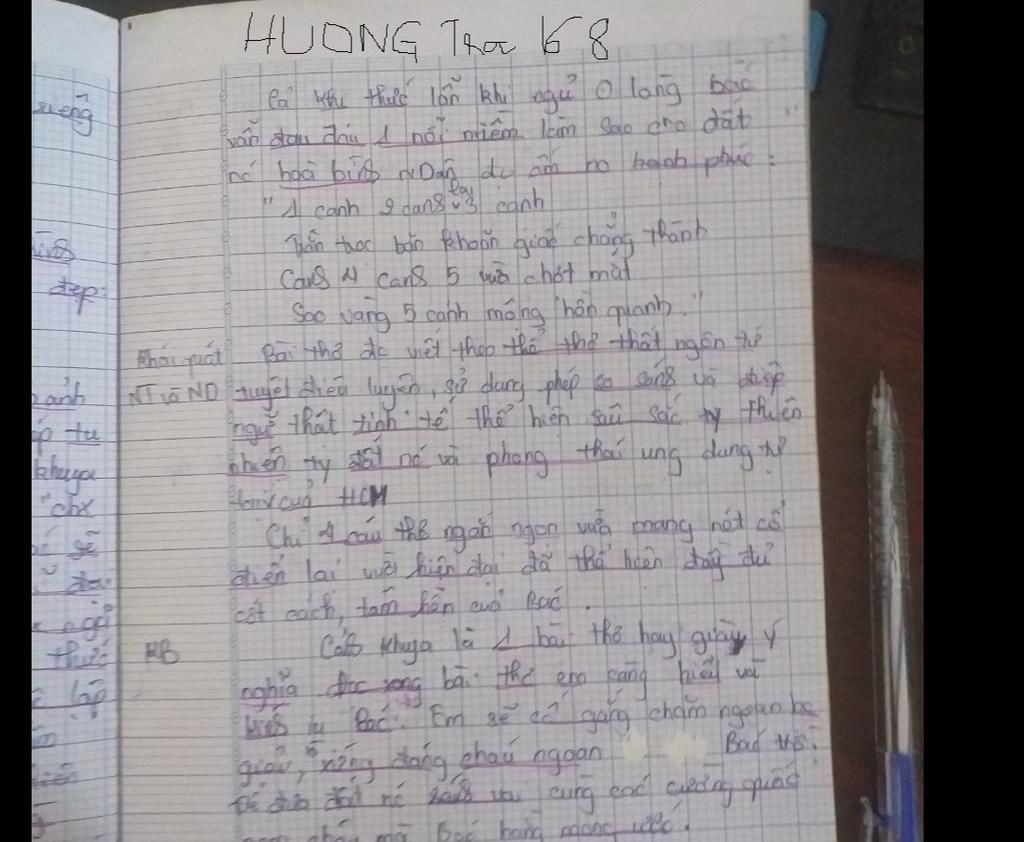 HUONG Tra K8
Cả khi thức lẫn khi ngủ O lòng bác
vẫn đau đáu 1 nỗi niềm làm sao cho đất
nc hoà bình ndân đc ấm no hạnh phúc:
"1 canh 2 cang lại 3 canh
băn khoăn giấc chẳng thành
Canh 4 canh 5 vừa chợt mắt
Sao vàng 5 cánh mộng hồn quanh."
Khái quát Bài thơ đc viết theo thể thơ thất ngôn tứ
NT và ND tuyệt điêu luyện, sử dụng phép so sánh và điệp
ngữ thật tinh tế thể hiện sâu sắc ty thiên
nhiên ty đất nc và phong thái ung dung tự
của HCM
Chỉ 4 câu thơ ngắn ngọn vừa mang nét cổ
điển lại vừa hiện đại đã thể hiện đầy đủ
cốt cách, tâm hồn của Bác.
KB Cảnh khuya là 1 bài thơ hay giàu ý
nghĩa đọc xong bài thơ em càng hiểu và
Bác. Em sẽ cố gắng chăm ngoan học
giỏi, xứng đáng cháu ngoan Bác Hồ.
Để đưa đất nc sánh vai cùng các cường quốc
năm châu mà Bác hằng mong ước.
riêng
đẹp:
tu
khuya
sẽ
thức
lập